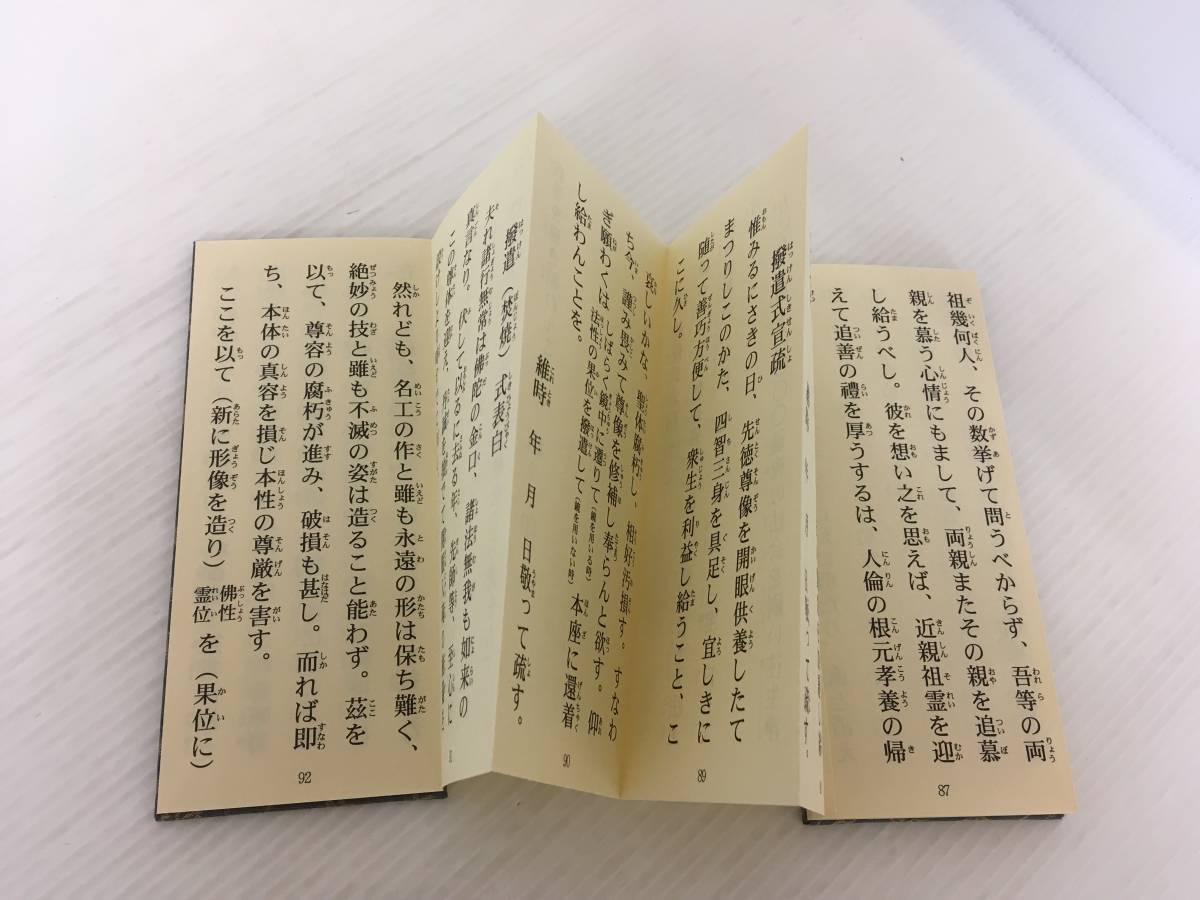 祖幾何人、その数挙げて問うべからず、吾等の両
親を慕う心情にもまして、両親またその親を追慕
し給うべし。彼を想い之を思えば、近親祖霊を迎
えて追善の禮を厚うするは、人倫の根元孝養の帰
87
撥遣式宣疏
惟みるにさきの日、先徳尊像を開眼供養したて
まつりしこのかた、四智三身を具足し、宜しきに
随って善巧方便して、衆生を利益し給うこと、こ
こに久し。
89
哀しいかな、聖体腐朽し、相好汚損す。すなわ
ち今、謹み畏みて尊像を修補し奉らんと欲す。仰
ぎ願わくは、しばらく鏡中に遷りて（鏡を用いる時）
法性の果位を撥遣して（鏡を用いない時）
本座に還着
し給わんことを。
維時 年 月 日敬って疏す。
90
撥遣 式表白
夫れ諸行無常は佛陀の金口、諸法無我も如来の
真言なり。伏して以るに去る年、先師等、至心に
然れども、名工の作と雖も永遠の形は保ち難く、
絶妙の技と雖も不滅の姿は造ること能わず。茲を
以て、尊容の腐朽が進み、破損も甚し。而れば即
ち、本体の真容を損じ本性の尊厳を害す。
ここを以て（新に形像を造り）佛性 霊位 を（果位に）
92